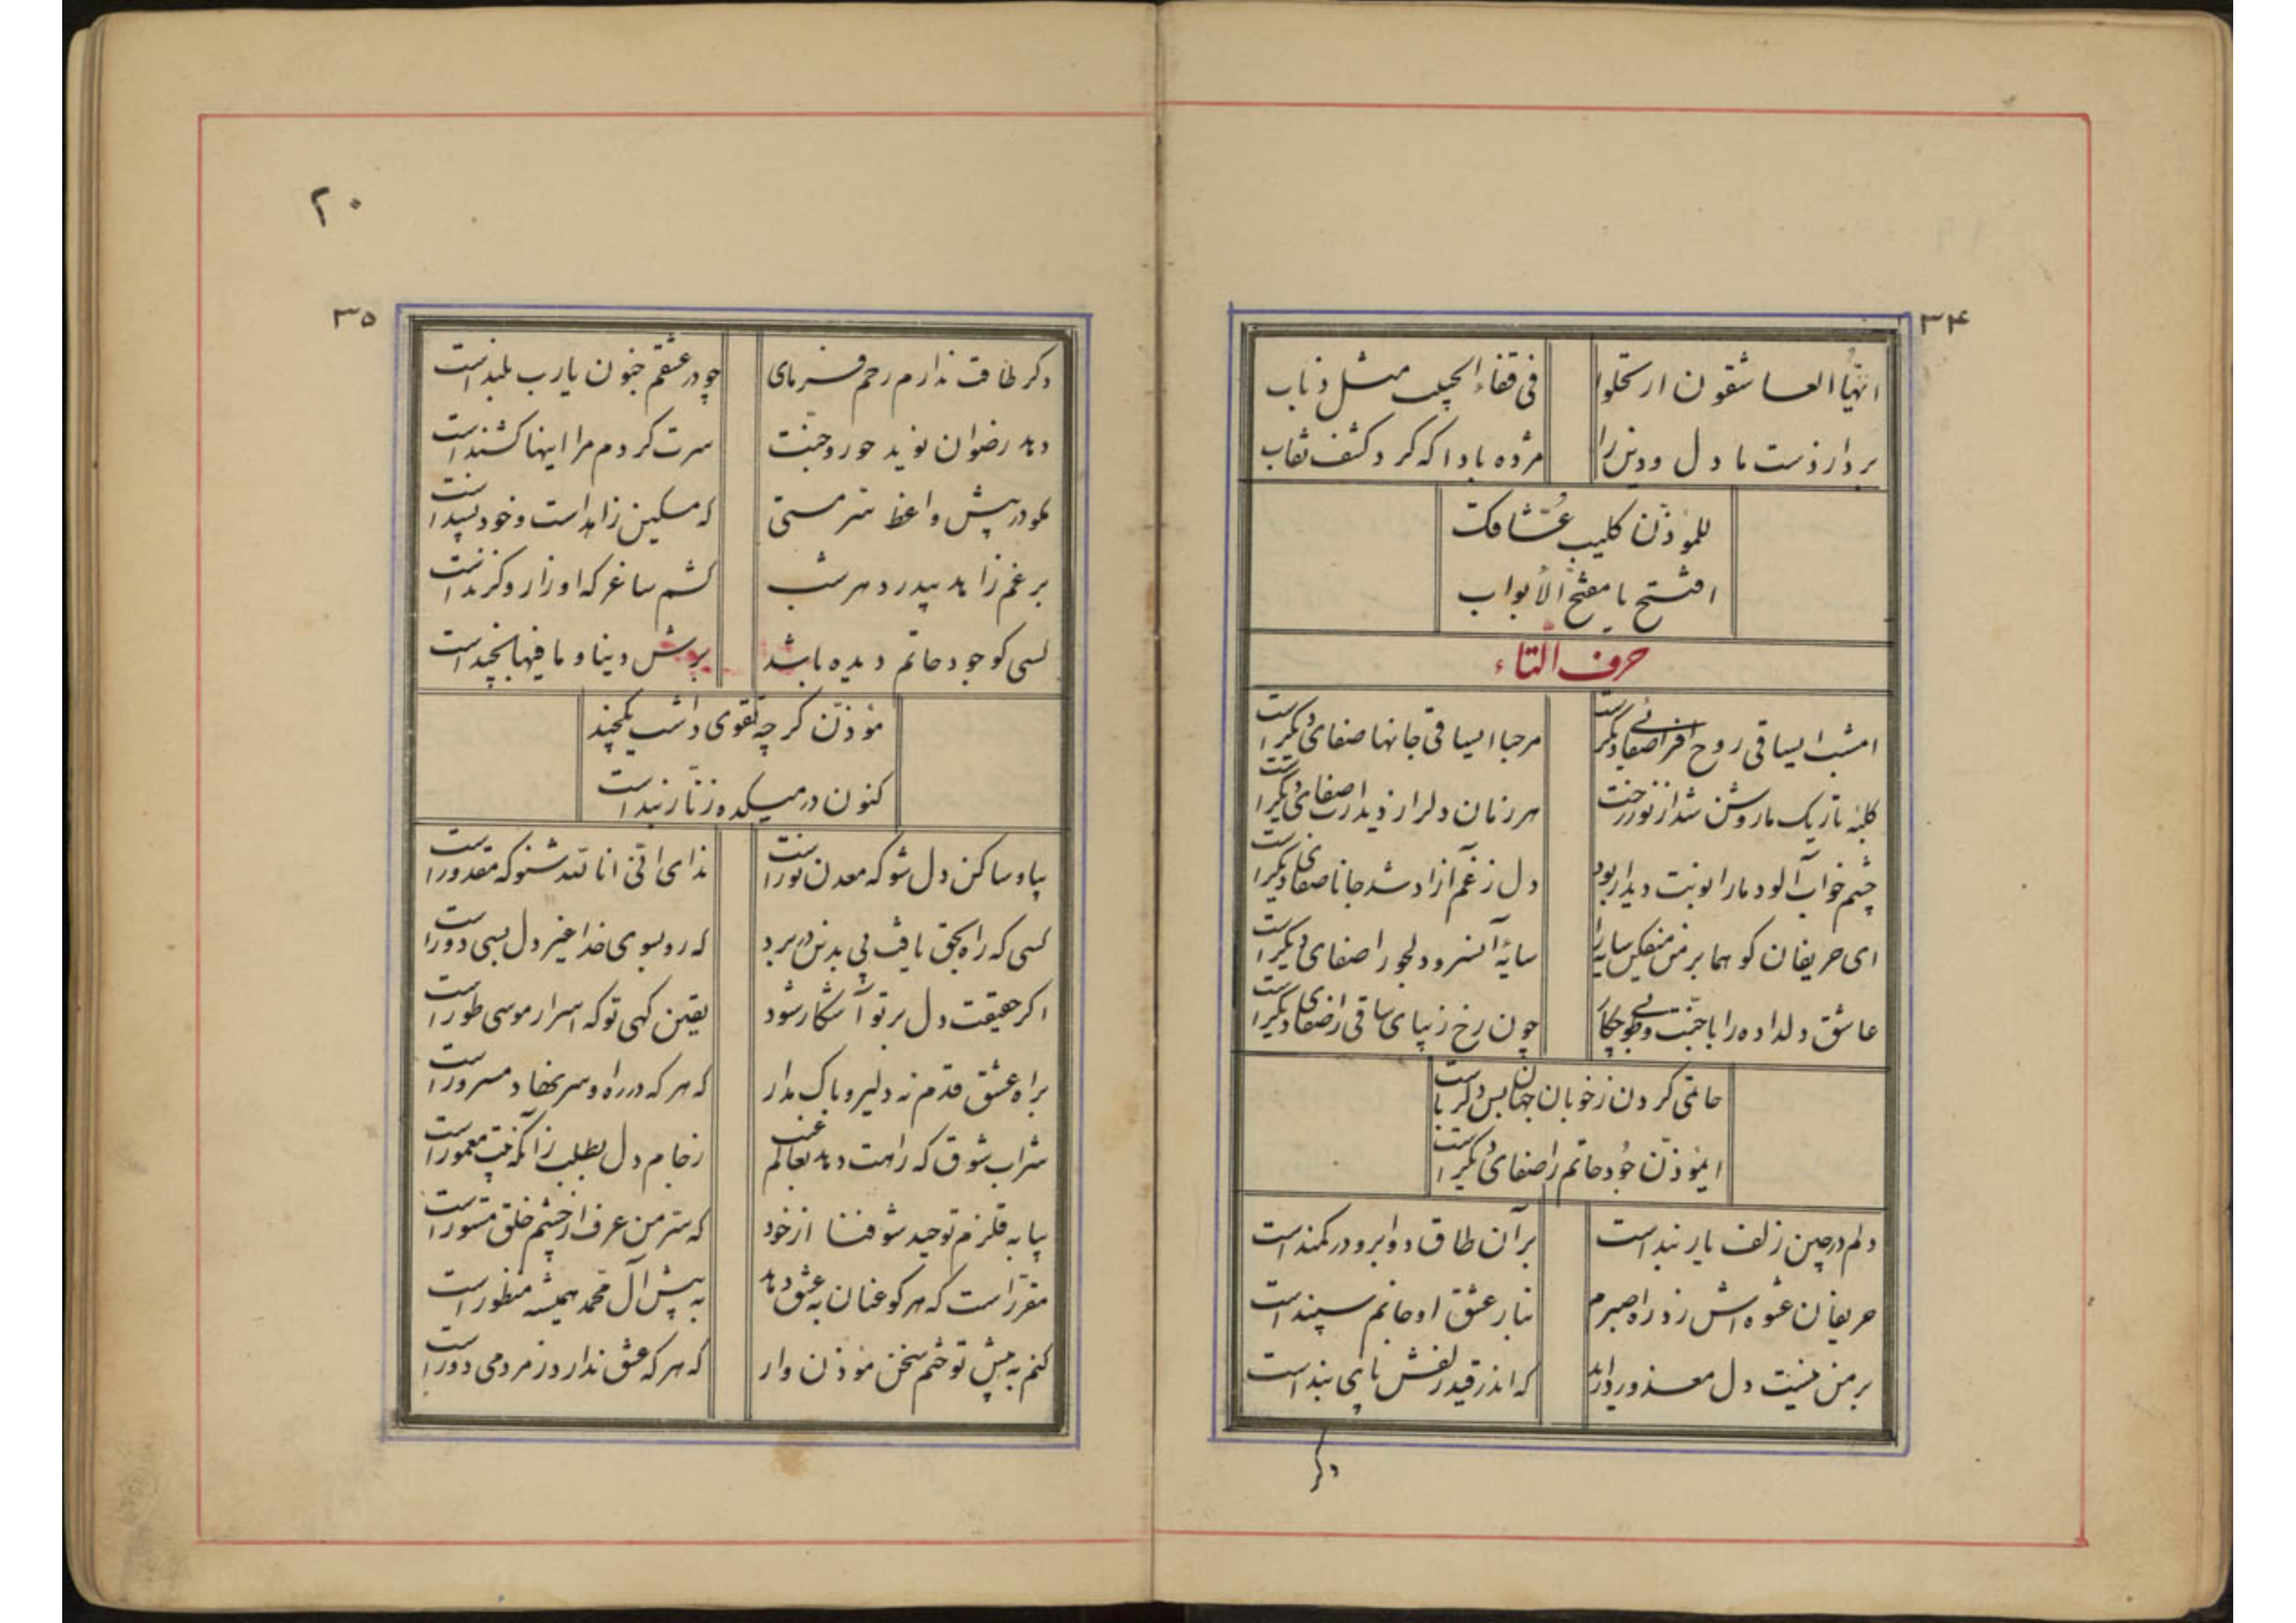 ۳۴
ایها العاشقون ارتحلوا
فی قفاء الحبیب مثل ذباب
بردار دست ما دل و دین را
مژده بادا که کرد کشف نقاب
للمؤذن کلیب عشاقک
افتتح یا مفتح الأبواب
حرف التاء
امشب ایساقی روح افزا صفای دیگر است
مرحبا ایساقی جانها صفای دیگر است
کلبۀ تاریک ما روشن شد از نور رخت
هر زمان دلرا ز دیدارت صفای دیگر است
چشم خواب آلود ما را نوبت دیدار بود
دل ز غم آزاد شد جانا صفای دیگر است
ای حریفان کو هما بر من میفکن سایه را
سایۀ آنسرو دلجو را صفای دیگر است
عاشق دلداده را با جنت و طوبی چکار
چون رخ زیبای ساقی را صفای دیگر است
حاتمی کردن ز خوبان جهان بس دلرباست
ایمؤذن جود حاتم را صفای دیگر است
دلم در چین زلف یار بند است
بر آن طاق دو ابرو در کمند است
حریفان عشوه اش زد راه صبرم
بنار عشق او جانم سپند است
بر من نیست دل معذور دارید
که اندر قید زلفش پای بند است
دگر
۲۰
۳۵
دگر طاقت ندارم رحم فرمای
چو در عشقم جنون یارب بلند است
دهد رضوان نوید حور و جنت
سرت گردم مرا اینها کشند است
مگو در پیش واعظ سر مستی
که مسکین زاهد است و خود پسند است
برغم زاهد بیدرد هر شب
کشم ساغر که او زار و گزند است
کسی کو جود حاتم دیده باشد
برش دنیا و ما فیها بچند است
مؤذن گرچه تقوی داشت یکچند
کنون در میکده زنار بند است
بیا و ساکن دل شو که معدن نور است
ندای انی انا الله شنو که مقدور است
کسی که راه بحق یافت پی بدین در برد
که ره بسوی خدا غیر دل بسی دور است
اگر حقیقت دل بر تو آشکار شود
یقین کنی تو که اسرار موسی طور است
براه عشق قدم نه دلیر و باک مدار
که هر که در ره او سر نهاد مسرور است
شراب شوق که راهت دهد بعالم غیب
ز جام دل بطلب زانکه بیت معمور است
بیا به قلزم توحید شو فنا از خود
که سر من عرف از چشم خلق مستور است
مقرر است که هر کو عنان به عشق دهد
به پیش آل محمد همیشه منظور است
کنم به پیش تو ختم سخن مؤذن وار
که هر که عشق ندارد ز مردمی دور است